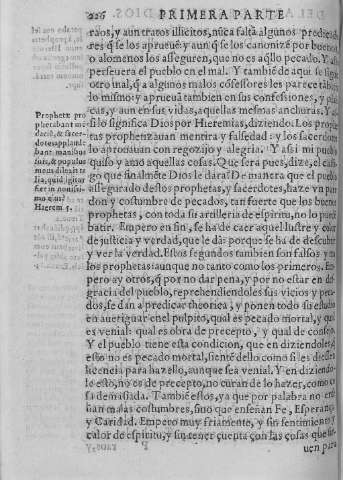 226 PRIMERA PARTE
raos, y aun tratos illicitos, nũca faltã algunos
res q̃ se los aprueuẽ: y aun q̃ se los canonizẽ por buenos
o alomenos los asseguren, que no es aq̃llo pecado. Y assi
perseuera el pueblo en el mal. Y tambiẽ de aqui se
otro inal, q̃ a algunos malos cõfessores les parece
lo mismo: y aprueuã tambien en sus confessiones, y
cas, y aun en sus vidas, aquellas mesmas anchuras. Y
si lo significa Dios por Hieremias, diziendo. Los prophe
tas prophetizauan mentira y falsedad: y los sacerdo
lo aprouauan con regozijo y alegria. Y assi mi pueblo
quiso y amo aquellas cosas. Que sera pues, dize, el
go que finalmẽte Dios le dara? De manera que el pueblo
assegurado destos prophetas, y sacerdotes, haze vn
don y costumbre de pecados, tan fuerte que los buenos
prophetas, con toda su artilleria de espiritu, no lo
batir. Empero en fin, se ha de caer aquel lustre y color
de justicia y verdad, que le dã: porque se ha de descubrir
y ver la verdad. Estos segundos tambien son falsos
los prophetas: aunque no tanto como los primeros. Em
pero ay otros, q̃ por no dar pena, y por no estar en
gracia del pueblo, reprehendiendoles sus vicios y per
dos, se dan a predicar theorica: y ponen todo su estudio
en aueriguar en el pulpito, qual es pecado mortal, y qual
es venial: qual es obra de precepto, y qual de consejo.
Y el pueblo tiene esta condicion, que en diziendoles
esto no es pecado mortal, siẽtẽ dello como si les diessen
licencia para hazello, aunque sea venial. Y en diziendo
le esto, no es de precepto, no curan de lo hazer, como co
sa demasiada. Tambiẽ estos, ya que por palabra no
ñan malas costumbres, sino que enseñan Fe, Esperança
y Caridad. Empero muy friamente, y sin sentimiento
calor de espiritu, y sin tener cuenta con las cosas que
P
uen para
Prophetæ pro
phetabant mẽ
daciũ, & sacer-
dotes applaude
bant manibus
suis, & populus
meus dilexit ta
lia, quid igitur
fiet in nouissi-
mo eius?
Hierem. 5.